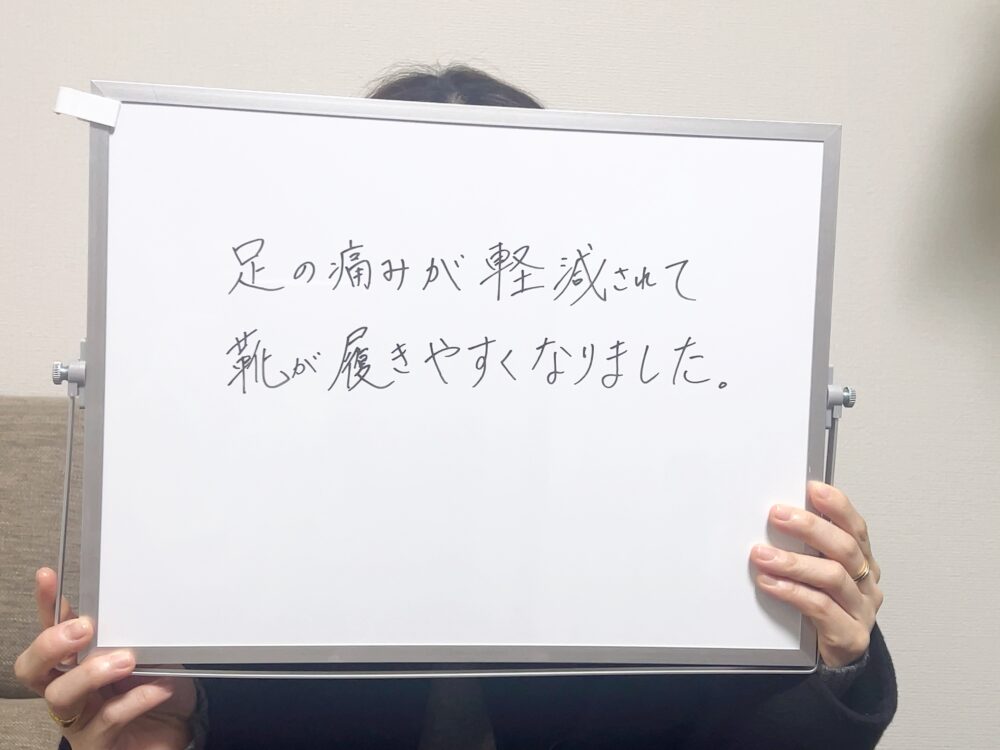 足の痛みが軽減されて
靴が履きやすくなりました。